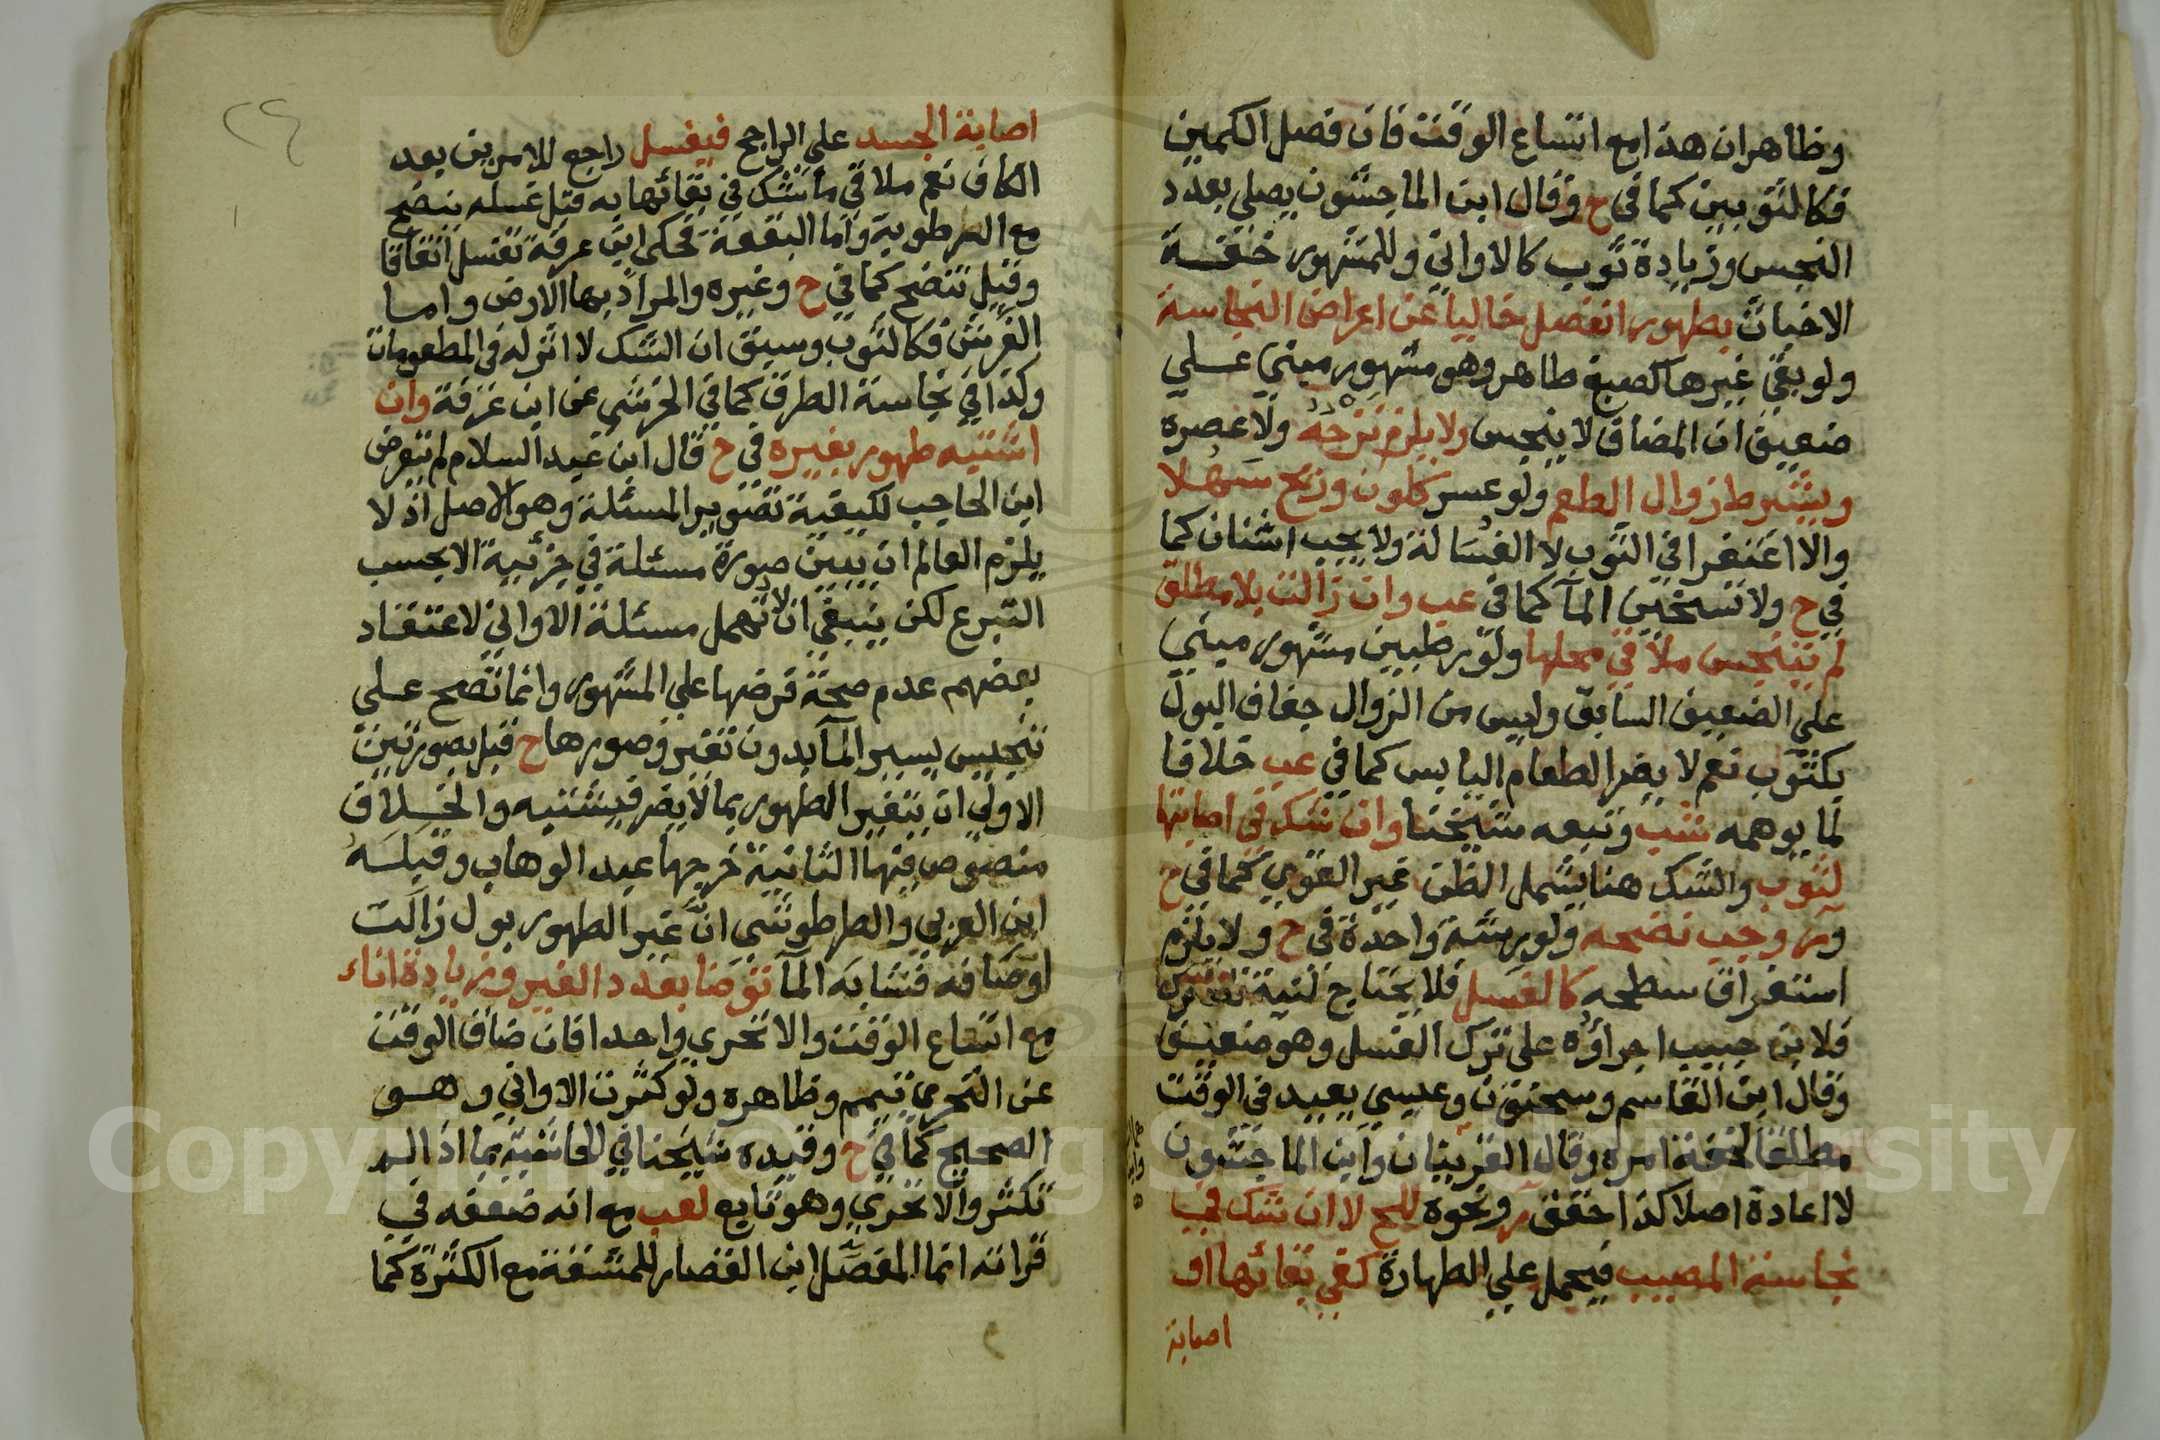 وظاهران هذا مع اتساع الوقت فان فصل الكمين
فكالثوبين كما في ح وقال ابن الماجشون يصلي بعدد
النجس وزيادة ثوب كالاواني وللمشهور خفة
الاخباث بطهور انفصل خاليا عن اعراض النجاسة
ولو بقي غيرها كصبغ طاهر وهو مشهور مبني علي
ضعيف ان المضاف لا ينجس ولا يلزم ولا عصره
ويشترط زوال الطعم ولو عسر كلون وريح سهلا
والا اغتفرا في الثوب لا الغسالة ولا يجب اشنان كما
في ح ولا تسخين المآ كما في عب وان زالت بلا مطلق
لم يتنجس ملاقي محلها ولو رطبين مشهور مبني
علي الضعيف السابق وليس من الزوال جفاف البول
بكثوب نعم لا يضر الطعام اليابس كما في عب خلافا
لما يوهمه شب وتبعه شيخنا وان شك في اصابتها
لثوب والشك هنا يشمل الظن غير القوي كما في ح
و وجب نضحه ولو برشة واحدة في ح ولا يلزم
استغراق سطحه كالغسل فلا يحتاج لنية
فلابن حبيب اجراؤه علي ترك الغسل وهو ضعيف
وقال ابن القاسم وسحنون وعيسي يعيد في الوقت
مطلقا لخفة امره وقال القرينان وابن الماجشون
لا اعادة اصلا كذا حقق ونحوه للح لا ان شك في
نجاسة المصيب فيحمل علي الطهارة كفي بقائها او
اصابة
٢٤
اصابة الجسد علي الراجح فيغسل راجع للامرين بعد
الكاف نعم ملاقي ما شك في بقائها به قبل غسله ينضح
مع الرطوبة واما البقعة فحكي ابن عرفة تغسل اتفاقا
وقيل تنضح كما في ح وغيره والمراد بها الارض واما
الفرش فكالثوب وسبق ان الشك لا اثر له في المطعومات
وكذا في نجاسة الطرق كما في الخرشي عن ابن عرفة وان
اشتبه طهور بغيره في ح قال ابن عبد السلام لم يتعرض
ابن الحاجب لكيفية تصوير المسئلة وهو الاصل اذ لا
يلزم العالم ان يبين صورة مسئلة في جزئية الا بحسب
التبرع لكن ينبغي ان لا تهمل مسئلة الاواني لاعتقاد
بعضهم عدم صحة فرضها علي المشهور وانما تصح علي
تنجيس يسير المآ بدون تغير وصورها ح قبل بصورتين
الاولي ان يتغير الطهور بما لا يضر فيشتبه والخلاف
منصوص فيها الثانية خرجها عبد الوهاب وقبله
ابن العربي والطرطوشي ان غير الطهور بول زالت
اوصافه فتشابه المآ توضا بعدد الغير وزيادة اناء
مع اتساع الوقت والا تحري واحدا فان ضاق الوقت
عن التحري تيمم وظاهره ولو كثرت الاواني وهو
الصحيح كما في ح وقيده شيخنا في الحاشية بما اذا لم
تكثر والا تحري وهو تابع لعب مع انه ضعفه في
قراته انما المفصل ابن القصار للمشقة مع الكثرة كما